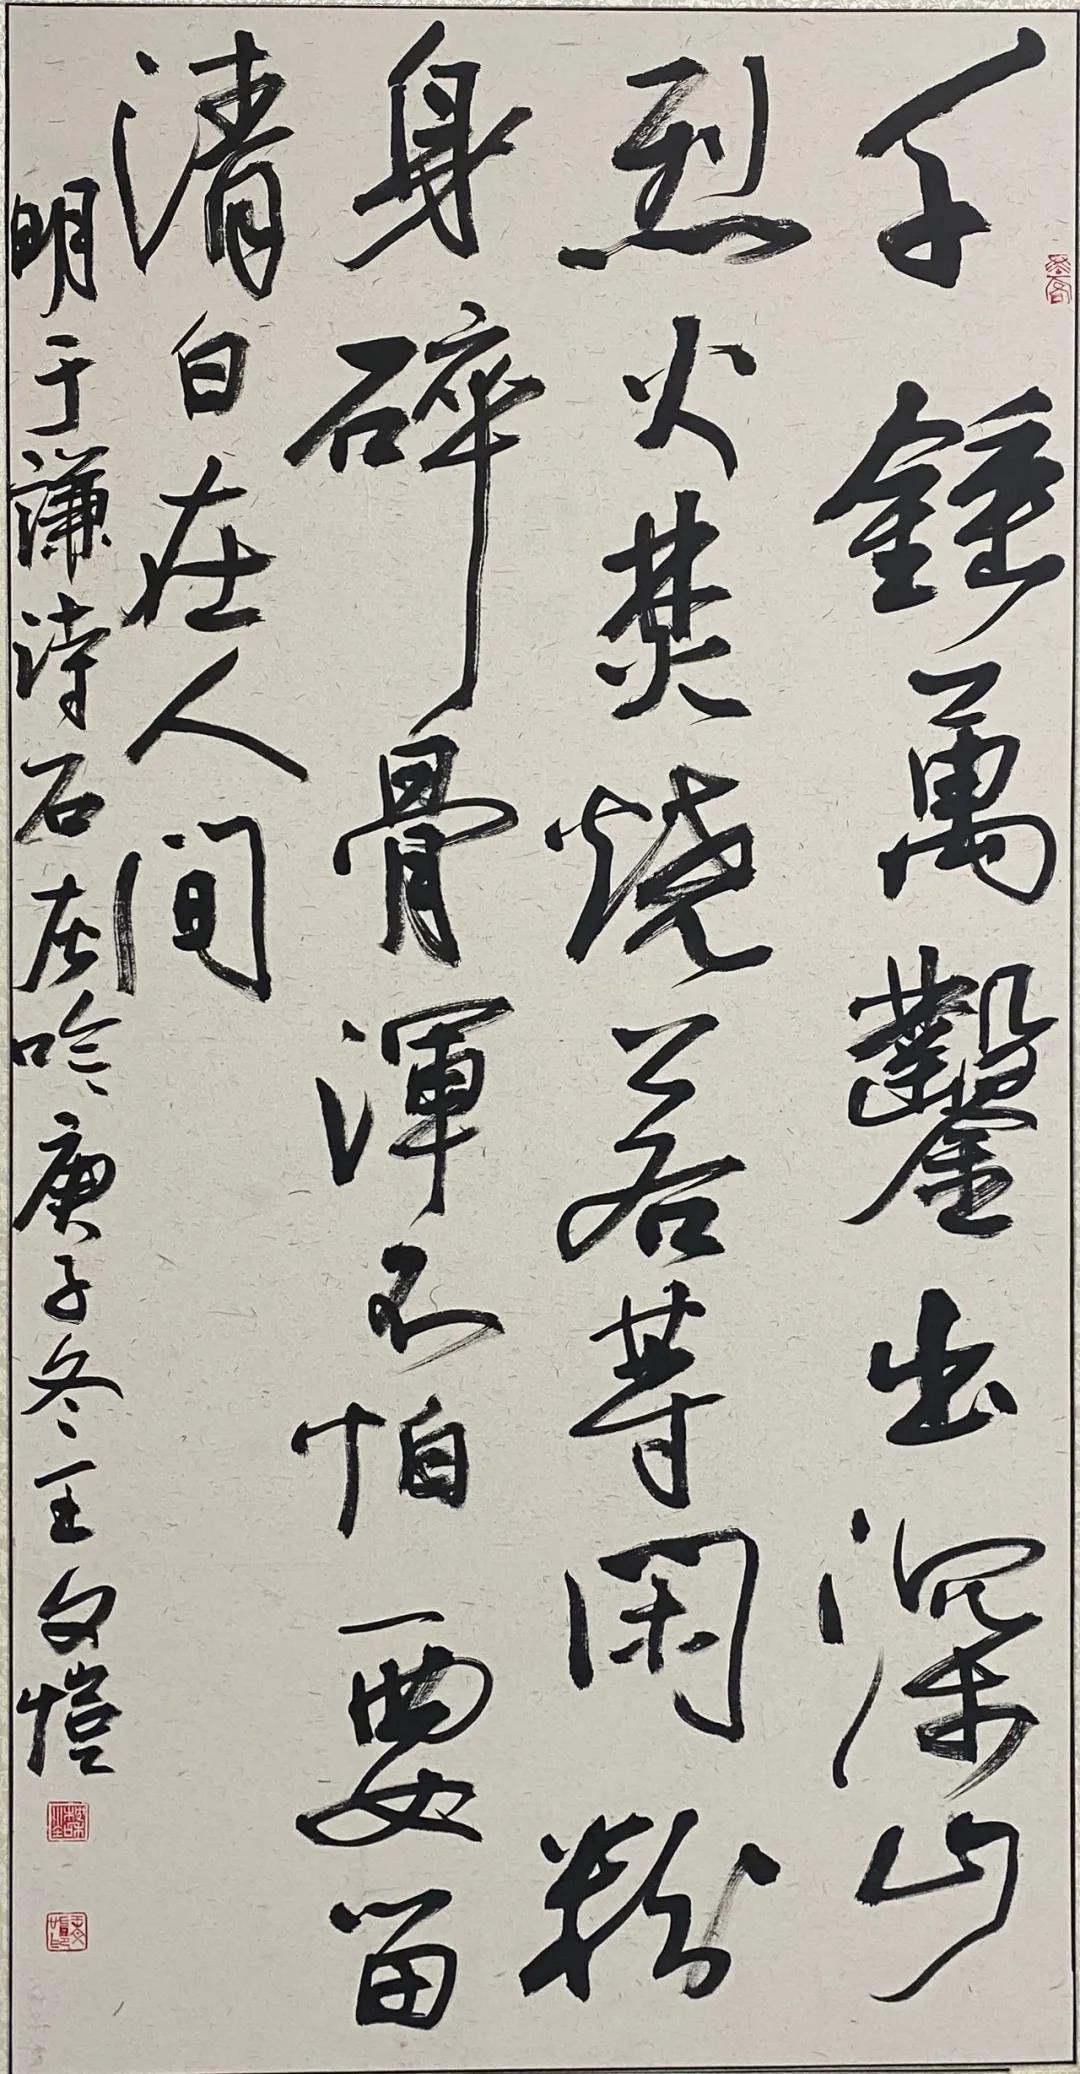 千錘萬鑿出深山
烈火焚燒若等閑粉
身碎骨渾不怕要留
清白在人间
明于谦诗石灰吟庚子冬王文愷